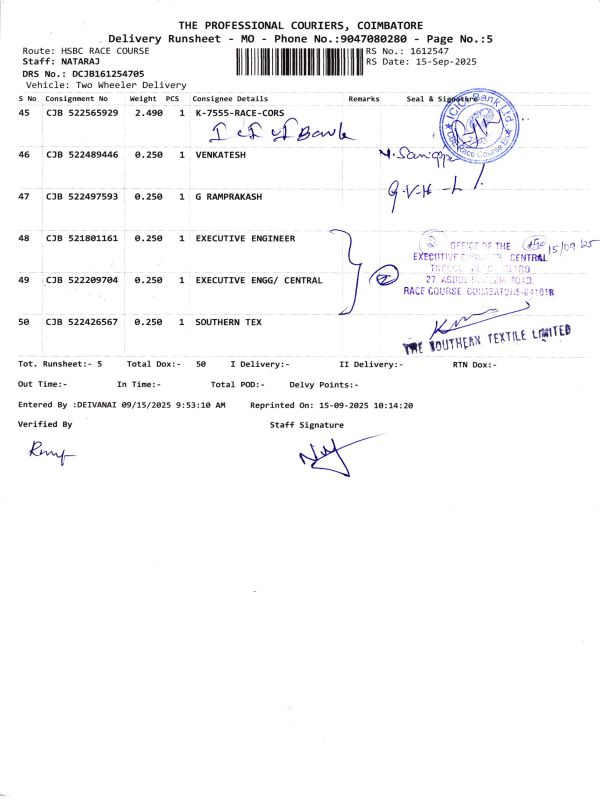 THE PROFESSIONAL COURIERS, COIMBATORE
Delivery Runsheet - MO - Phone No.:9047080280 - Page No.:5
Route: HSBC RACE COURSE RS No.: 1612547
Staff: NATARAJ RS Date: 15-Sep-2025
DRS No.: DCJB161254705
Vehicle: Two Wheeler Delivery
S No Consignment No Weight PCS Consignee Details Remarks Seal & Signature
45 CJB 522565929 2.490 1 K-7555-RACE-CORS
ICICI Bank
ICICI Bank Ltd
Race Course
46 CJB 522489446 0.250 1 VENKATESH
47 CJB 522497593 0.250 1 G RAMPRAKASH
48 CJB 521801161 0.250 1 EXECUTIVE ENGINEER
2 OFFICE OF THE 15/09/25
EXECUTIVE ENGINEER CENTRAL
49 CJB 522209704 0.250 1 EXECUTIVE ENGG/ CENTRAL
2
27 ROAD,
RACE COURSE COIMBATORE-641018
50 CJB 522426567 0.250 1 SOUTHERN TEX
THE SOUTHERN TEXTILE LIMITED
Tot. Runsheet:- 5 Total Dox:- 50 I Delivery:- II Delivery:- RTN Dox:-
Out Time:- In Time:- Total POD:- Delvy Points:-
Entered By :DEIVANAI 09/15/2025 9:53:10 AM Reprinted On: 15-09-2025 10:14:20
Verified By Staff Signature